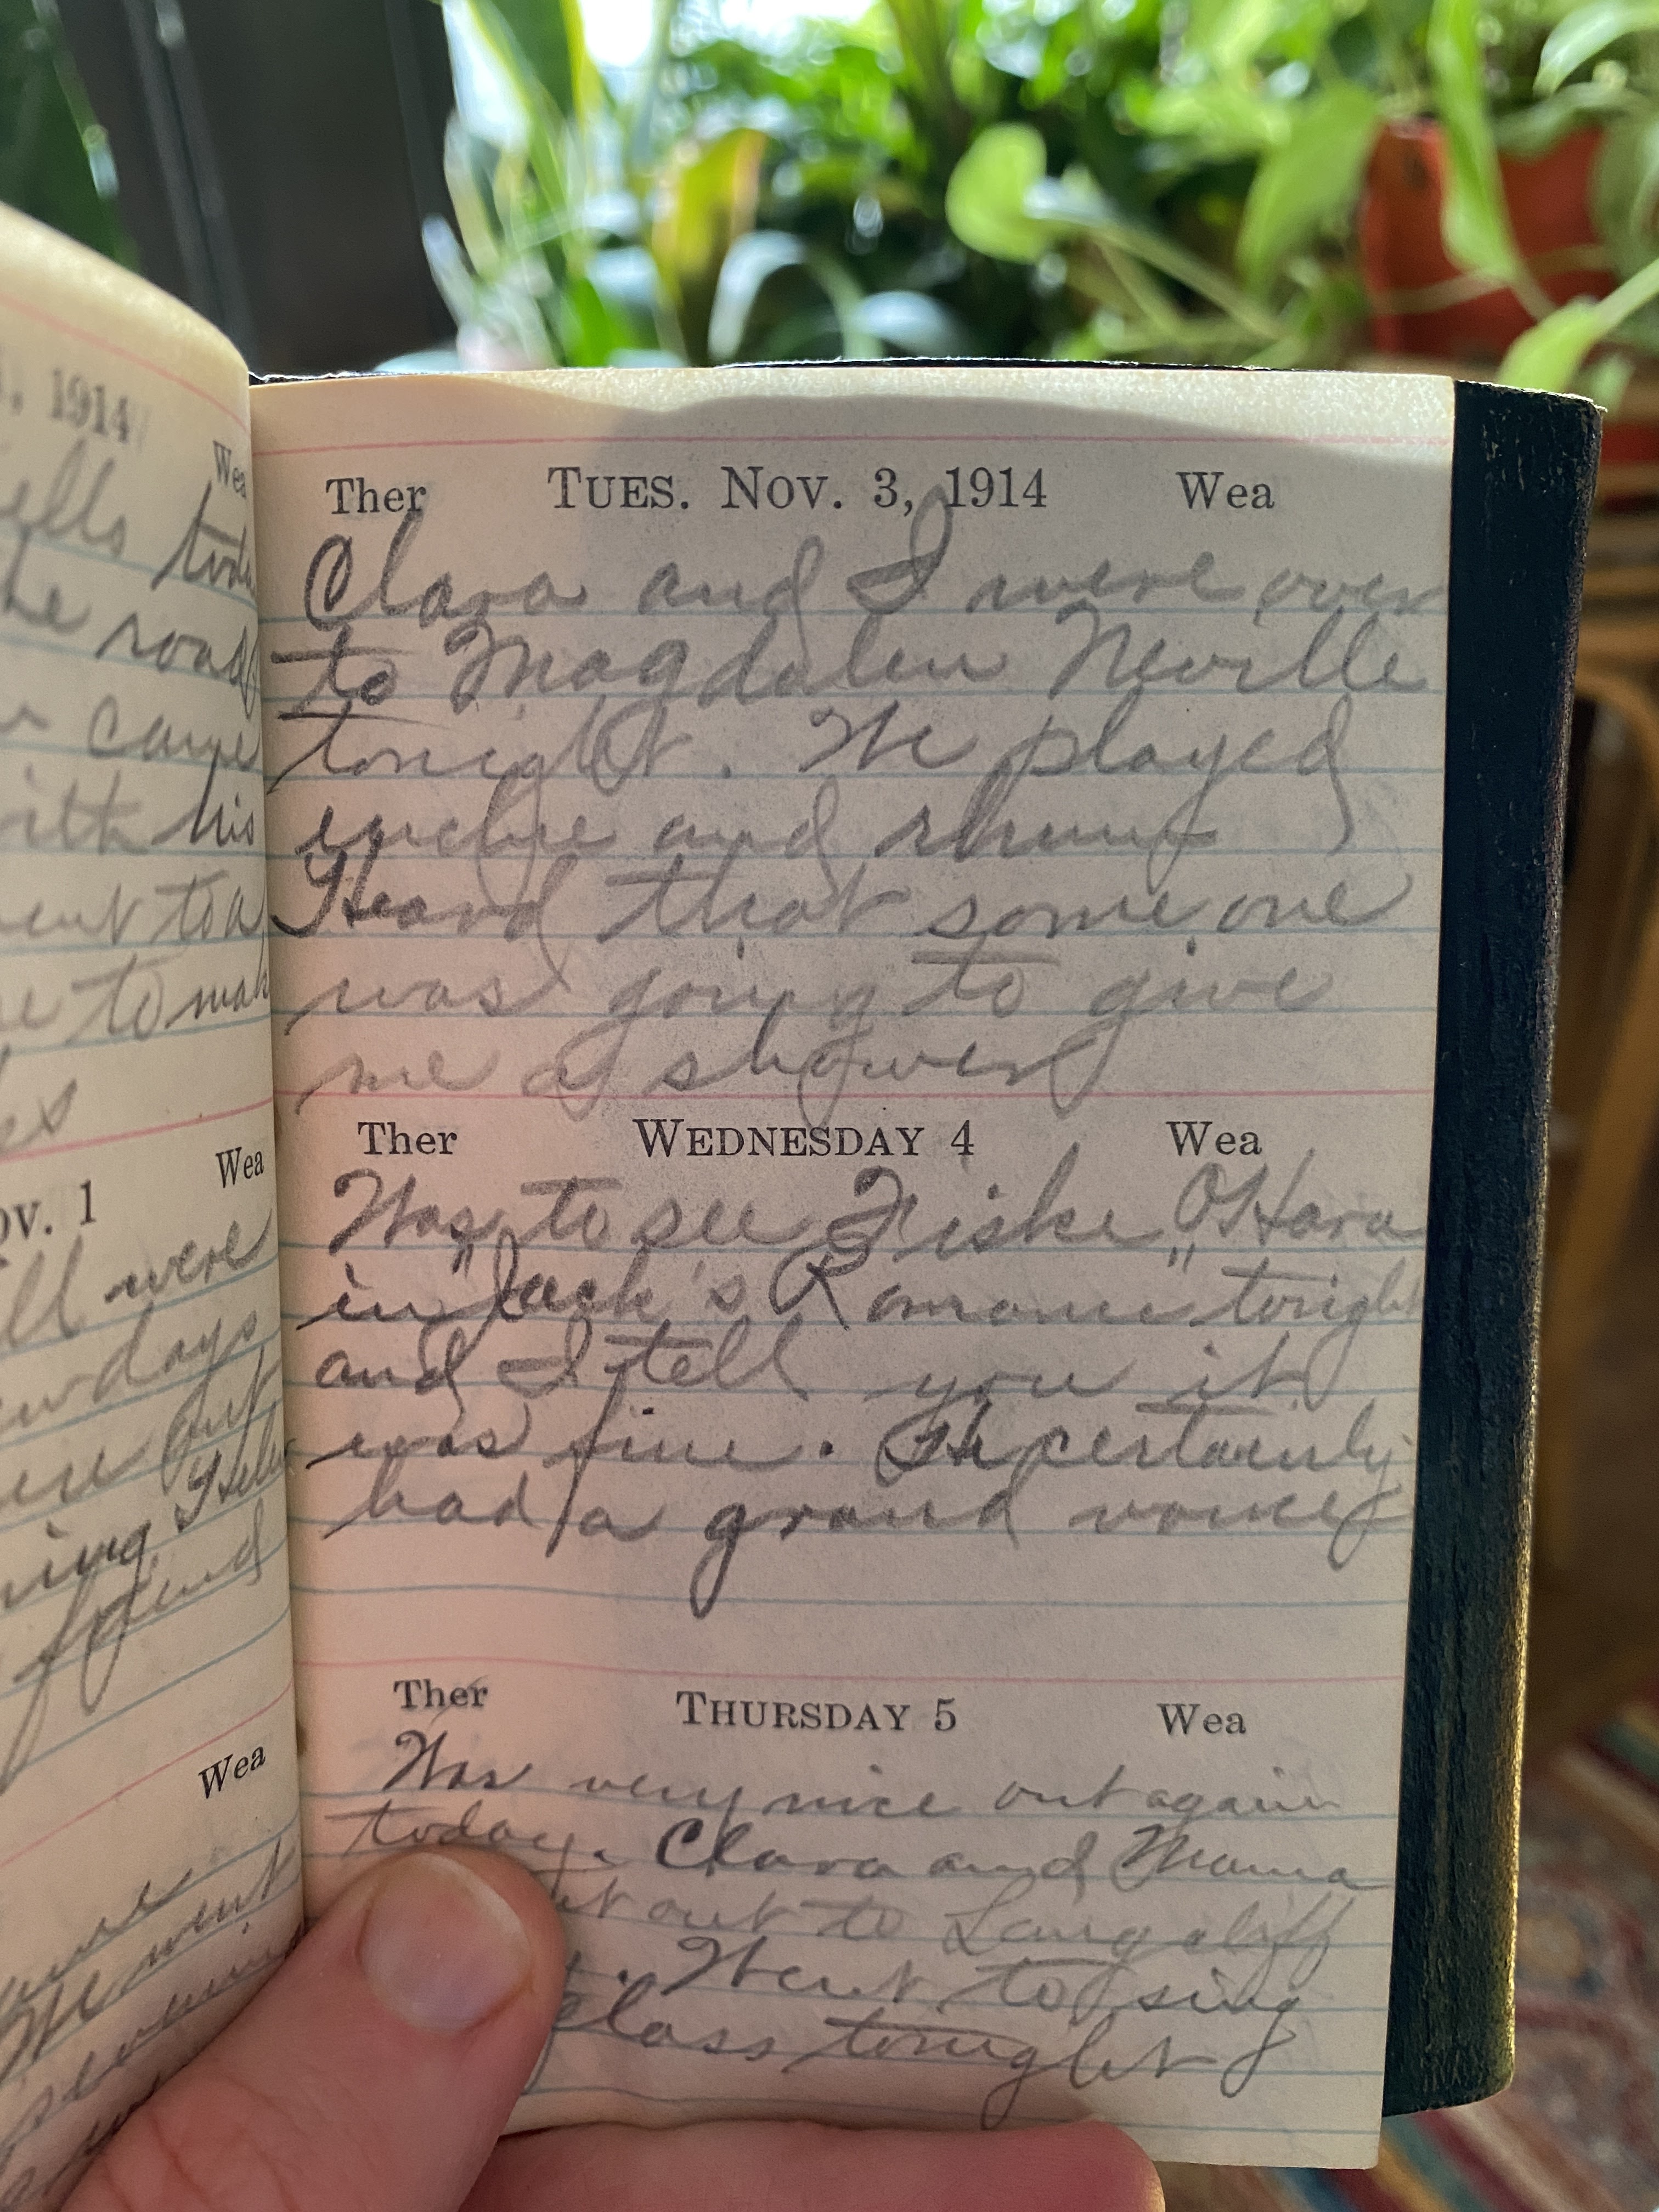 , 1914
Wea
ells today
he road
came
with his
went to a
to mak
Wea
ov. 1
ll were
days
out
ning Helen
friend
Wea
We went
Ther TUES. NOV. 3, 1914 Wea
Clara and I were over
to Magdalen Neville
tonight. We played
euchre and rhum
Heard that some one
was going to give
me a shower
Ther WEDNESDAY 4 Wea
Was to see Fiske O'Hara
in "Jack's Romance" tonight
and I tell you it
was fine. He certainly
had a grand voice
Ther THURSDAY 5 Wea
Was very nice out again
today. Clara and Mama
out to Langcliff
. Went to sing
class tonight